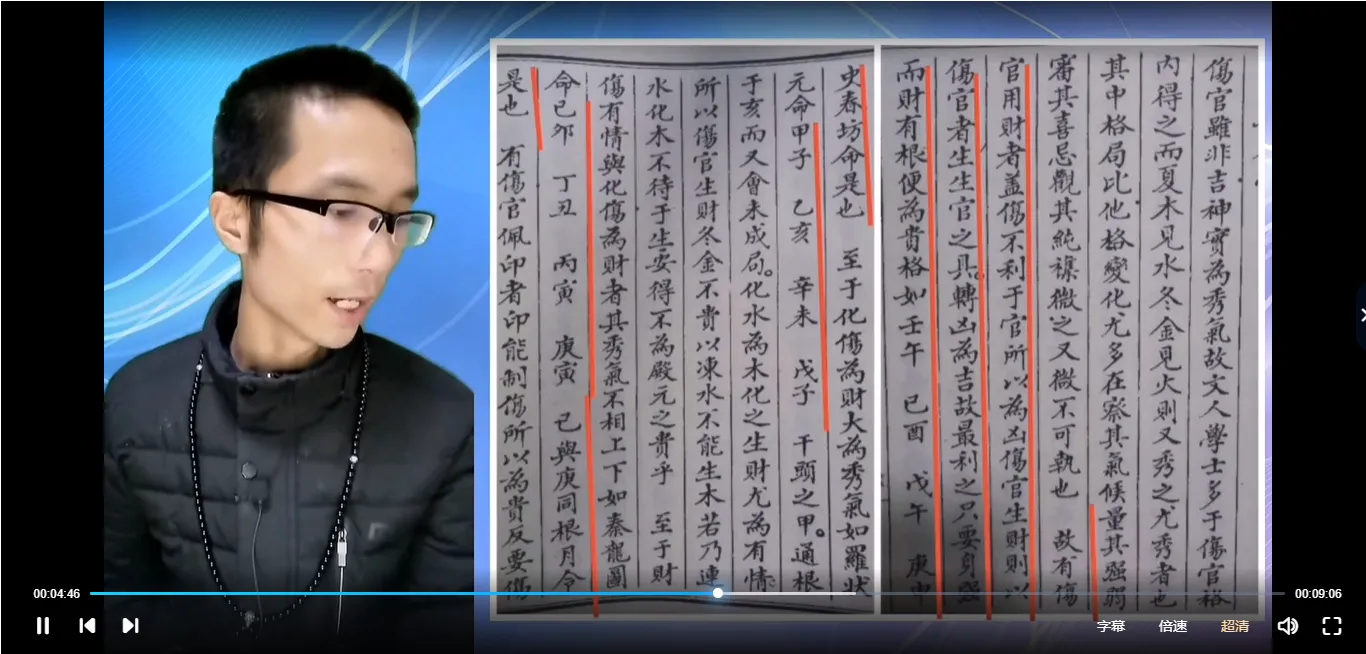 傷官雖非吉神實為秀氣故文人學士多于傷官格
內得之而夏木見水冬金見火則又秀之尤秀者也
其中格局比他格變化尤多在察其氣候量其强弱
審其喜忌觀其純襍微之又微不可執也　故有傷
官用財者蓋傷不利于官所以為凶傷官生財則以
傷官者生生官之具。轉凶為吉故最利之只要身强
而財有根便為貴格如壬午　己酉　戊午　庚申
史春坊命是也　至于化傷為財大為秀氣如羅狀
元命甲子　乙亥　辛未　戊子　干頭之甲。通根
于亥而又會未成局。化水為木化之生財尤為有情
所以傷官生財冬金不貴以凍水不能生木若乃連
水化木不待于生安得不為殿元之貴乎　至于財
傷有情與化傷為財者其秀氣不相上下如秦龍圖
命己卯　丁丑　丙寅　庚寅　己與庚同根月令
是也　有傷官佩印者印能制傷所以為貴反要傷
00:04:46
00:09:06
字幕
倍速
超清